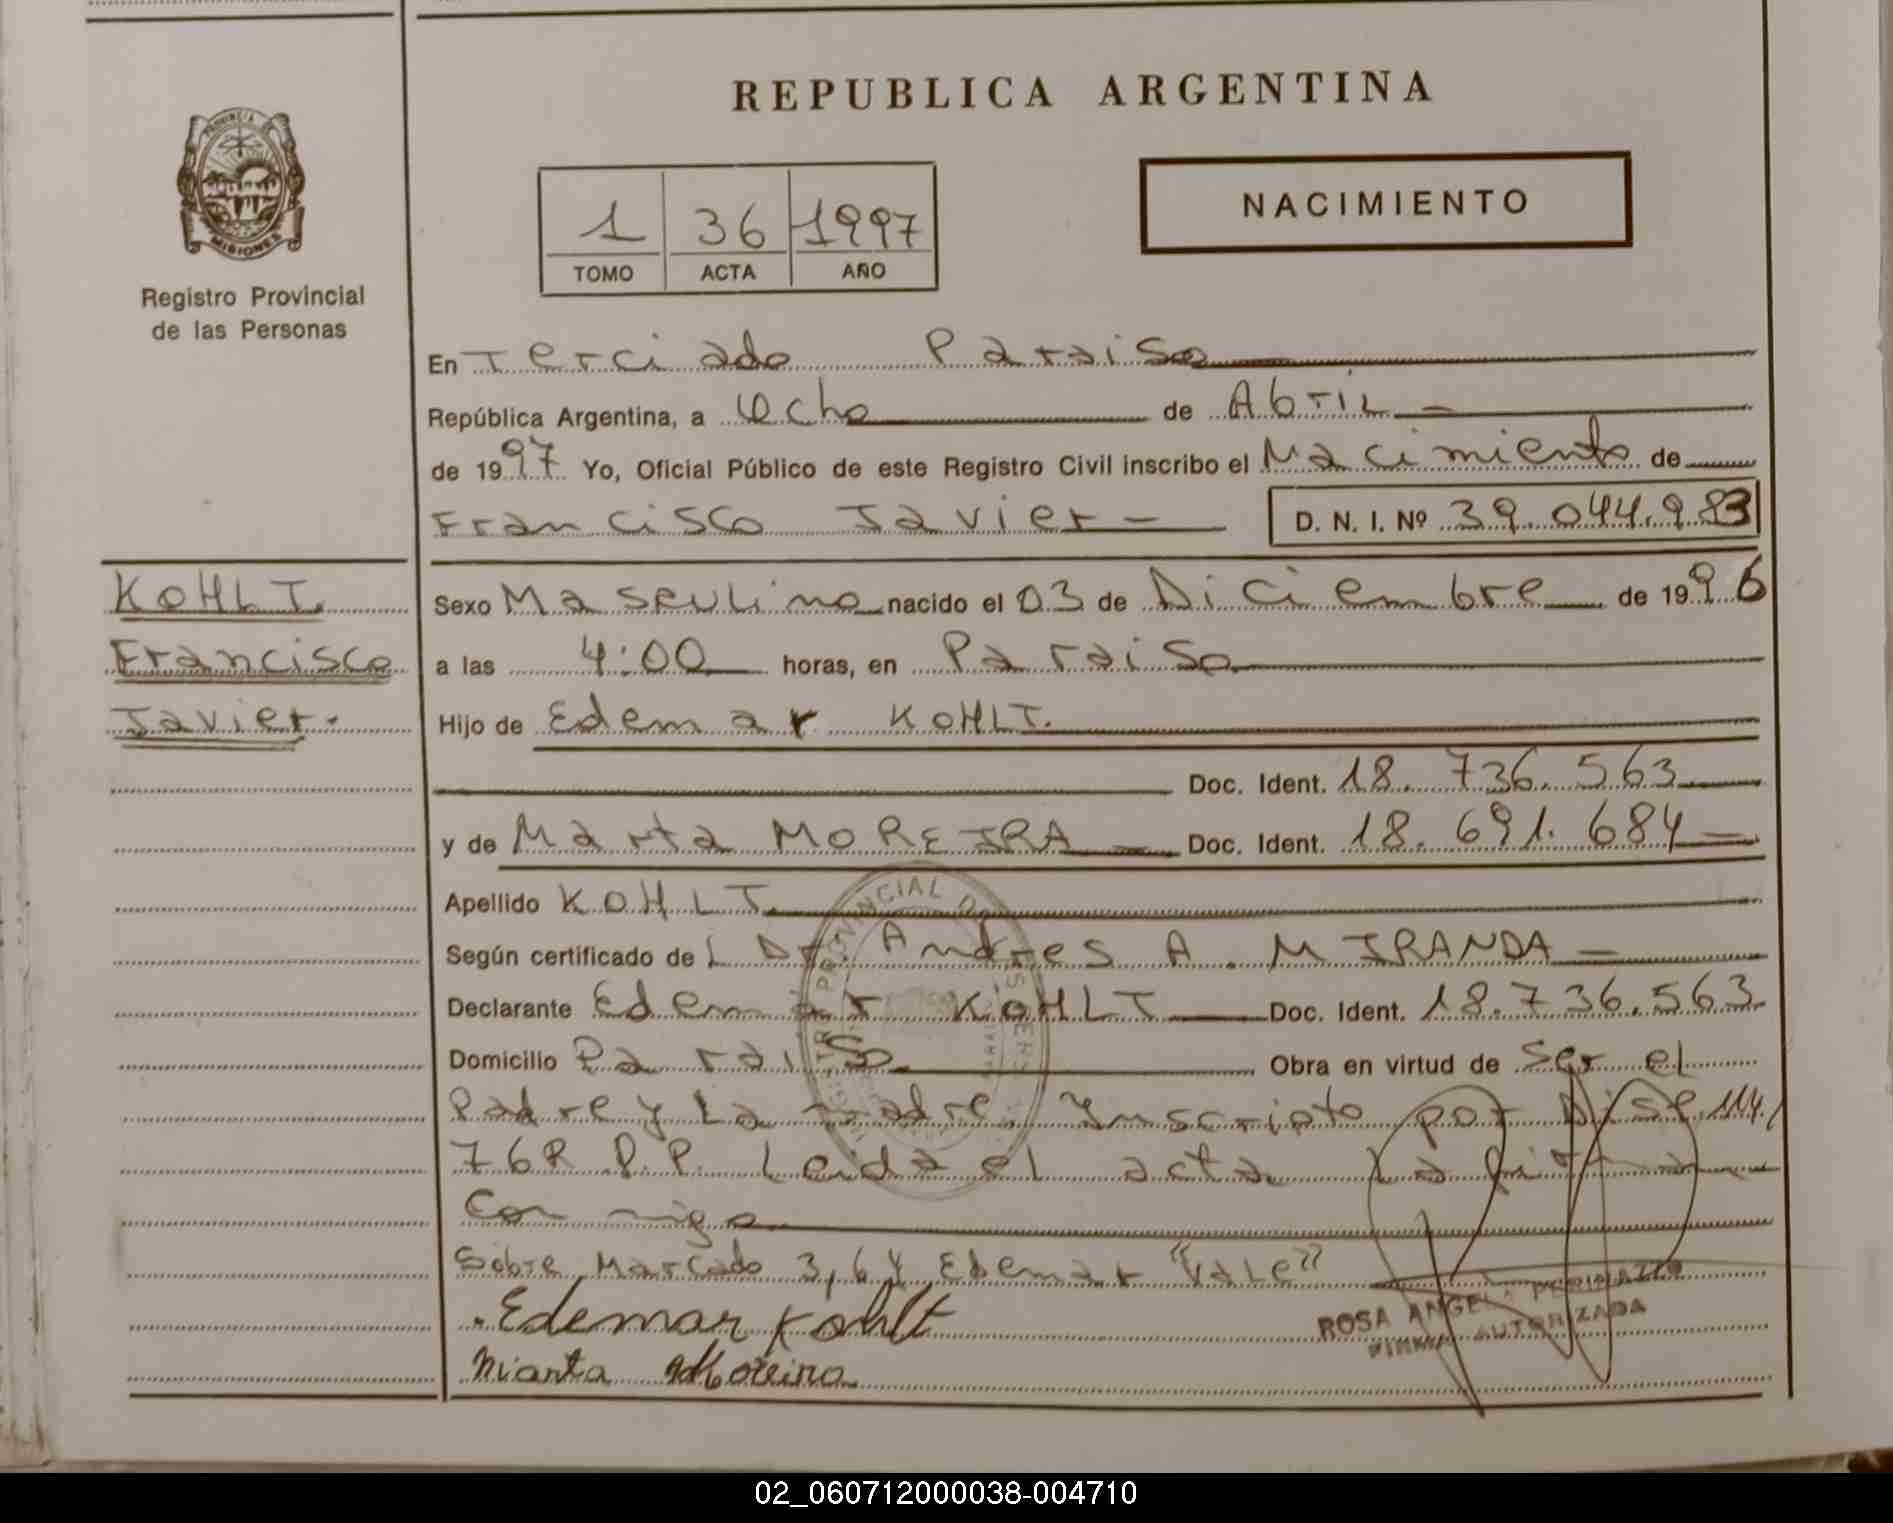 REPUBLICA ARGENTINA
PROVINCIA DE
MISIONES
Registro Provincial
de las Personas
1 36 1997
TOMO ACTA AÑO
NACIMIENTO
En Terciado Paraiso
República Argentina, a Ocho de Abril
de 1997 Yo, Oficial Público de este Registro Civil inscribo el Nacimiento de
Francisco Javier D. N. I. Nº 39.044.983
KOHLT.
Francisco
Javier.
Sexo Masculino nacido el 03 de Diciembre de 1996
a las 4:00 horas, en Paraiso
Hijo de Edemar KOHLT.
Doc. Ident. 18.736.563
y de Marta MOREIRA Doc. Ident. 18.691.684
Apellido KOHLT.
Según certificado del Dr. Andres A. MIRANDA
Declarante Edemar KOHLT Doc. Ident. 18.736.563.
Domicilio Paraiso Obra en virtud de Ser el
Padre y La madre. Inscripto por Disp. 114/
76 R.P.P. Leida el acta La firma
Conmigo
Sobre Marcado 3, 6 y Edemar "Vale"
Edemar Kohlt
Marta Moreira
ROSA ANGELA
FIRMA AUTORIZADA
02_060712000038-004710